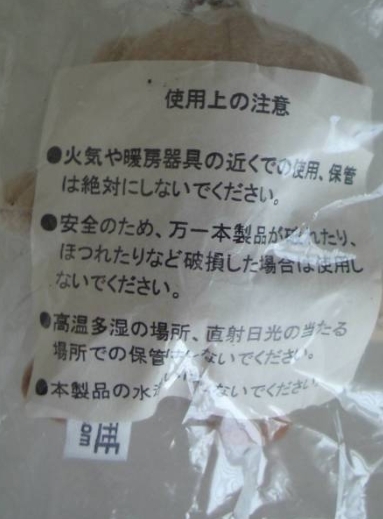 使用上の注意
●火気や暖房器具の近くでの使用、保管
は絶対にしないでください。
●安全のため、万一本製品が破れたり、
ほつれたりなど破損した場合は使用し
ないでください。
●高温多湿の場所、直射日光の当たる
場所での保管はしないでください。
●本製品の水 ないでください
om